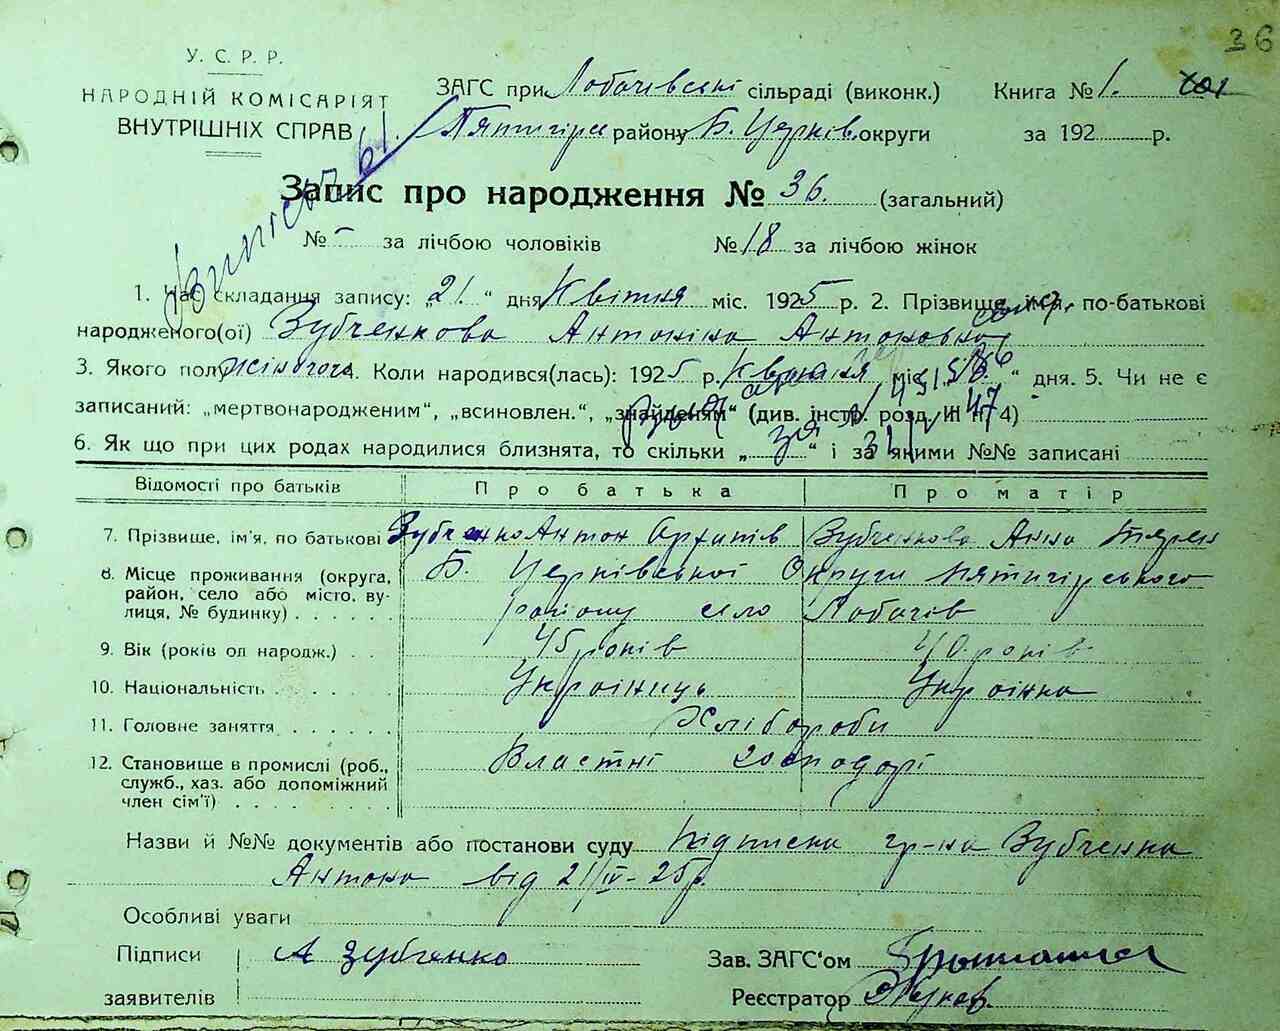 36
У. С. Р. Р.
НАРОДНІЙ КОМІСАРІЯТ
ВНУТРІШНІХ СПРАВ
ЗАГС при Лобачівські сільраді (виконк.) Книга № 1.
району Б. Церків. округи за 192 р.
Запис про народження № 36. (загальний)
№ – за лічбою чоловіків № 18 за лічбою жінок
1. Час складання запису: „21“ дня Квітня міс. 1925 р. 2. Прізвище, ім'я, по-батькові
народженого(ої) Зубченкова Антоніна Антоновна
3. Якого полу жіночого 4. Коли народився(лась): 1925 р. Квітня міс. „ “ дня. 5. Чи не є
записаний: „мертвонародженим“, „всиновлен.“, „знайденям“ (див. інстр. розд. III п. 4)
6. Як що при цих родах народилися близнята, то скільки „ “ і за якими №№ записані
Відомості про батьків Про батька Про матір
7. Прізвище, ім'я, по батькові Зубченко Антон Архипів Зубченкова Анна
8. Місце проживання (округа, район, село або місто, вулиця, № будинку) Б. Церківської Округи Пятигірського
району село Лобачів
9. Вік (років од народж.) 45 років 40 років
10. Національність Украінець Украінка
11. Головне заняття Хлібороби
12. Становище в промислі (роб., служб., хаз. або допоміжний член сім'ї) Властні господарі
Назви й №№ документів або постанови суду Підписка гр-на Зубченка
Антона від 21/IV-25р.
Особливі уваги
Підписи А Зубченко Зав. ЗАГС'ом
заявителів Реєстратор